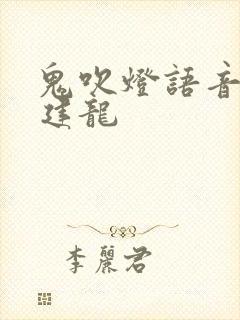 鬼吹燈語音
建龍
李麗君